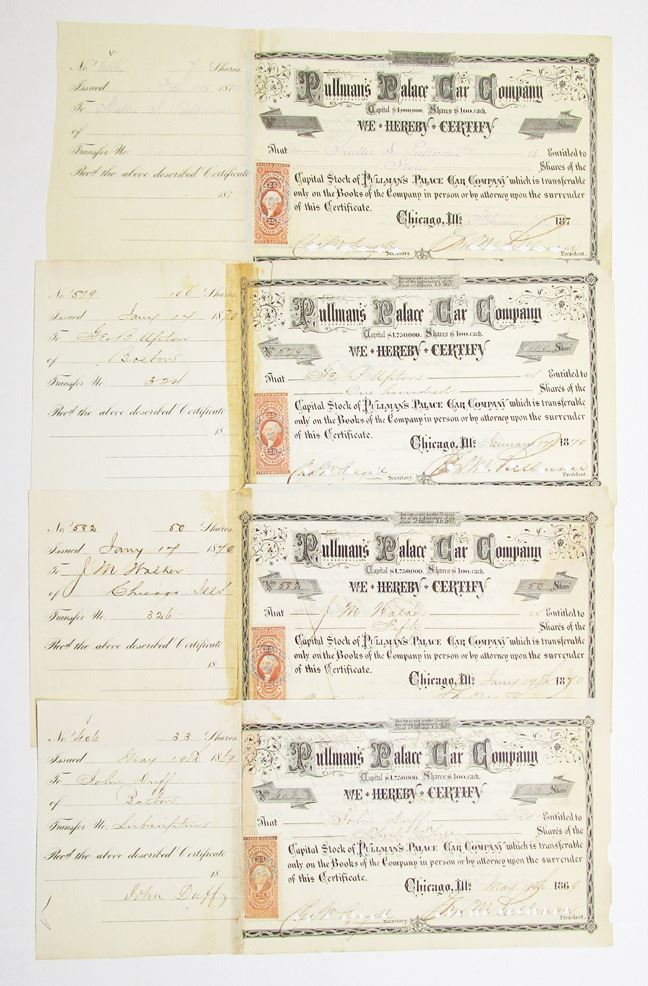 No. 7 Shares
Issued 187
To
of
Transfer No.
Rec'd the above described Certificate
187
Pullman's Palace Car Company
Capital Shares $100. each.
WE HEREBY CERTIFY
No. Shares
That is Entitled to
Shares of the
Capital Stock of PULLMAN'S PALACE CAR COMPANY which is transferable
only on the Books of the Company in person or by attorney upon the surrender
of this Certificate.
Chicago, Ill: 187
Secretary. President.
No. 579 100 Shares
Issued Jany 17 1870
To Geo. B Upton
of Boston
Transfer No. 324
Rec'd the above described Certificate
18
Pullman's Palace Car Company
Capital $1,750,000. Shares $100. each.
WE HEREBY CERTIFY
No. 579 100 Shares
That Geo B Upton is Entitled to
One hundred Shares of the
Capital Stock of PULLMAN'S PALACE CAR COMPANY which is transferable
only on the Books of the Company in person or by attorney upon the surrender
of this Certificate.
Chicago, Ill: January 1870
Secretary. President.
No. 532 50 Shares
Issued Jany 17 1870
To J M Walker
of Chicago Ills
Transfer No. 326
Rec'd the above described Certificate
18
Pullman's Palace Car Company
Capital $1,750,000. Shares $100. each.
WE HEREBY CERTIFY
No. 532 50 Shares
That J M Walker is Entitled to
Fifty Shares of the
Capital Stock of PULLMAN'S PALACE CAR COMPANY which is transferable
only on the Books of the Company in person or by attorney upon the surrender
of this Certificate.
Chicago, Ill: Jany 1870
No. 406 33 Shares
Issued May 1869
To John Duff
of Boston
Transfer No. Subscription
Rec'd the above described Certificate
18
John Duff
Pullman's Palace Car Company
Capital $1,750,000. Shares $100. each.
WE HEREBY CERTIFY
No. 406 33 Shares
That John Duff is Entitled to
Thirty Three Shares of the
Capital Stock of PULLMAN'S PALACE CAR COMPANY which is transferable
only on the Books of the Company in person or by attorney upon the surrender
of this Certificate.
Chicago, Ill: May 1869
Secretary. President.